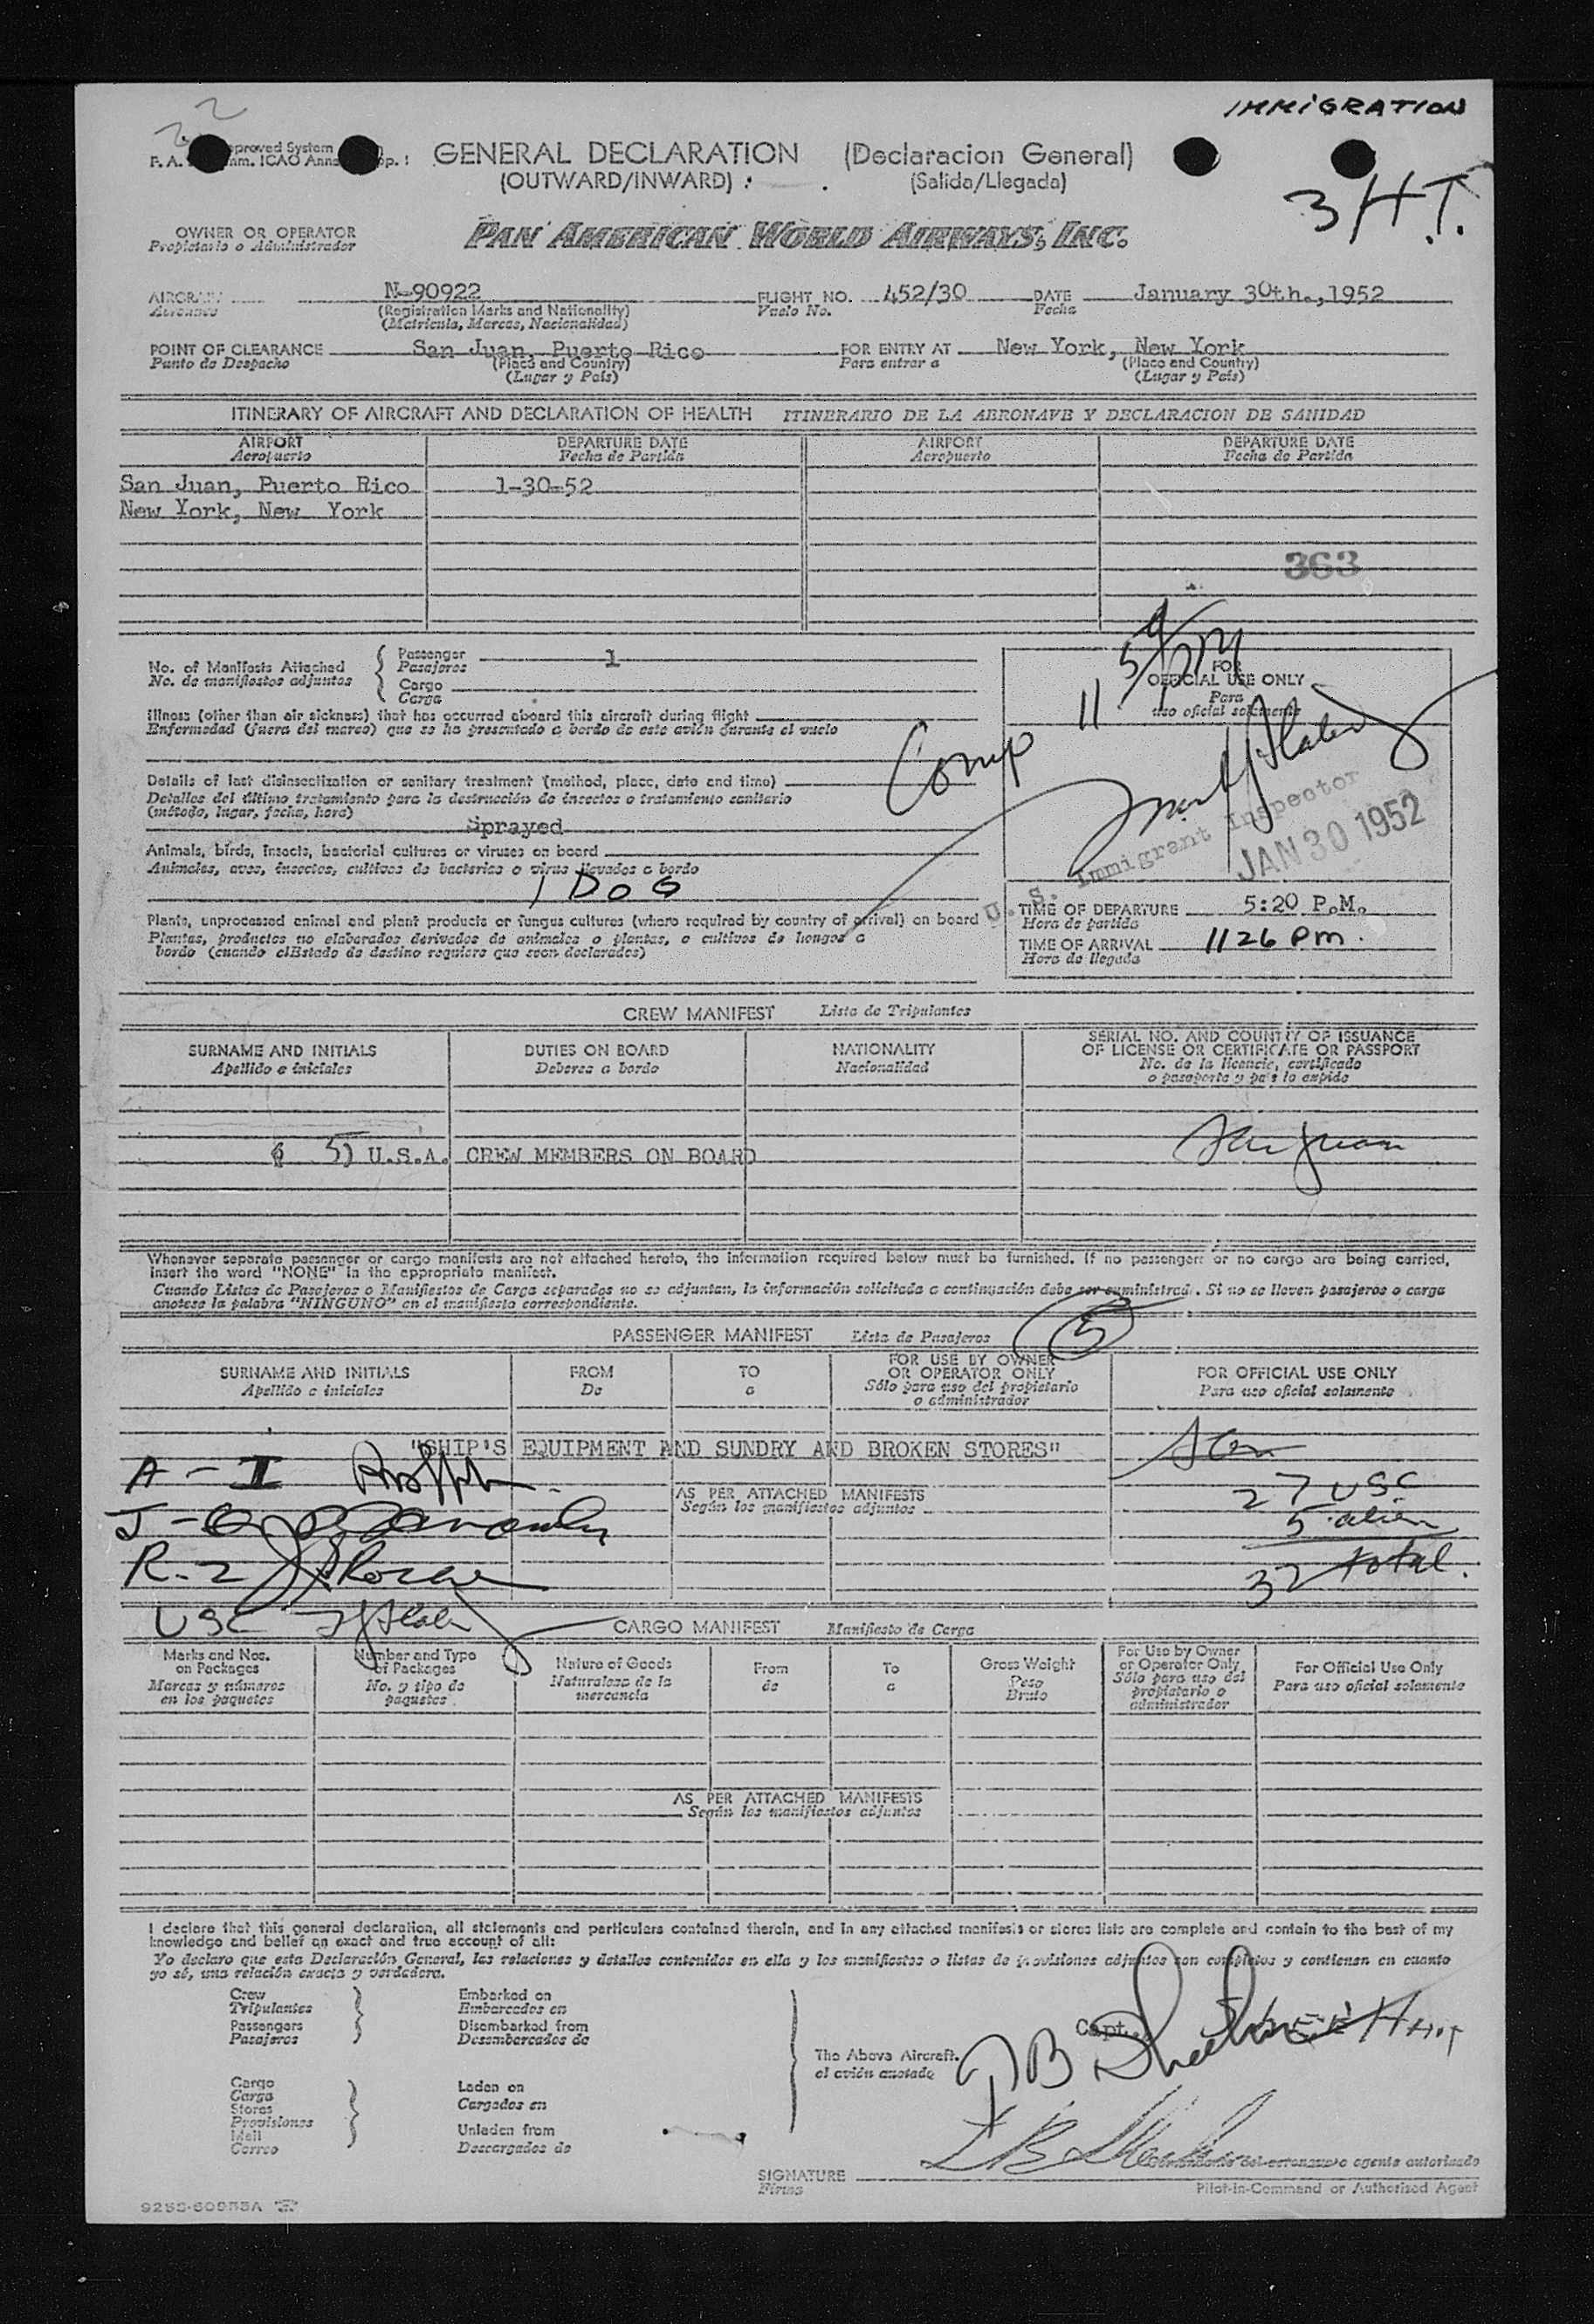 IMMIGRATION
GENERAL DECLARATION (Declaracion General)
(OUTWARD/INWARD) (Salida/Llegada)
3 H.T.
OWNER OR OPERATOR
Propietario o Administrador
PAN AMERICAN WORLD AIRWAYS, INC.
AIRCRAFT N-90922 FLIGHT NO. 452/30 DATE January 30th.,1952
Aeronave (Registration Marks and Nationality) Vuelo No. Fecha
(Matricula, Marcas, Nacionalidad)
POINT OF CLEARANCE San Juan, Puerto Rico FOR ENTRY AT New York, New York
Punto de Despacho (Place and Country) Para entrar a (Place and Country)
(Lugar y País) (Lugar y País)
ITINERARY OF AIRCRAFT AND DECLARATION OF HEALTH ITINERARIO DE LA AERONAVE Y DECLARACION DE SANIDAD
AIRPORT DEPARTURE DATE AIRPORT DEPARTURE DATE
Aeropuerto Fecha de Partida Aeropuerto Fecha de Partida
San Juan, Puerto Rico 1-30-52
New York, New York
363
No. of Manifests Attached
No. de manifiestos adjuntos
Passenger 1
Pasajeros
Cargo
Carga
Illness (other than air sickness) that has occurred aboard this aircraft during flight
Enfermedad (fuera del mareo) que se ha presentado a bordo de este avión durante el vuelo
Details of last disinsectization or sanitary treatment (method, place, date and time)
Detalles del último tratamiento para la destrucción de insectos o tratamiento sanitario
(método, lugar, fecha, hora)
Sprayed
Animals, birds, insects, bacterial cultures or viruses on board
Animales, aves, insectos, cultivos de bacterias o virus llevados a bordo
1 DOG
Plants, unprocessed animal and plant products or fungus cultures (where required by country of arrival) on board
Plantas, productos no elaborados derivados de animales o plantas, o cultivos de hongos a
bordo (cuando elEstado de destino requiere que sean declarados)
FOR
OFFICIAL USE ONLY
Para
uso oficial solamente
Comp 11 59 PM
U. S. Immigrant Inspector
JAN 30 1952
TIME OF DEPARTURE 5:20 P.M.
Hora de partida
TIME OF ARRIVAL 1126 PM.
Hora de llegada
CREW MANIFEST Lista de Tripulantes
SURNAME AND INITIALS DUTIES ON BOARD NATIONALITY SERIAL NO. AND COUNTRY OF ISSUANCE
OF LICENSE OR CERTIFICATE OR PASSPORT
Apellido e iniciales Deberes a bordo Nacionalidad No. de la licencia, certificado
o pasaporte y país lo expide
5) U.S.A. CREW MEMBERS ON BOARD San Juan
Whenever separate passenger or cargo manifests are not attached hereto, the information required below must be furnished. If no passengers or no cargo are being carried,
insert the word "NONE" in the appropriate manifest.
Cuando Listas de Pasajeros o Manifiestos de Carga separados no se adjuntan, la información solicitada a continuación debe ser suministrad. Si no se lleven pasajeros o carga
anotese la palabra "NINGUNO" en el manifiesto correspondiente.
PASSENGER MANIFEST Lista de Pasajeros 5
SURNAME AND INITIALS FROM TO FOR USE BY OWNER
OR OPERATOR ONLY FOR OFFICIAL USE ONLY
Apellido e iniciales De a Sólo para uso del propietario
o administrador Para uso oficial solamente
"SHIP'S EQUIPMENT AND SUNDRY AND BROKEN STORES"
A - I
AS PER ATTACHED MANIFESTS
Según los manifiestos adjuntos
27 USC
5 alien
R-2
32 total.
USC
CARGO MANIFEST Manifiesto de Carga
Marks and Nos.
on Packages
Marcas y números
en los paquetes
Number and Type
of Packages
No. y tipo de
paquetes
Nature of Goods
Naturaleza de la
mercancía
From
de
To
a
Gross Weight
Peso
Bruto
For Use by Owner
or Operator Only
Sólo para uso del
propietario o
administrador
For Official Use Only
Para uso oficial solamente
AS PER ATTACHED MANIFESTS
Según los manifiestos adjuntos
I declare that this general declaration, all statements and particulars contained therein, and in any attached manifests or stores lists are complete and contain to the best of my
knowledge and belief an exact and true account of all:
Yo declaro que esta Declaración General, las relaciones y detalles contenidos en ella y los manifiestos o listas de provisiones adjuntos son completos y contienen en cuanto
yo sé, una relación exacta y verdadera.
Crew
Tripulantes
Passengers
Pasajeros
Embarked on
Embarcados en
Disembarked from
Desembarcados de
Cargo
Carga
Stores
Provisiones
Mail
Correo
Laden on
Cargados en
Unladen from
Descargados de
The Above Aircraft.
el avión anotado
Capt.
SIGNATURE
Firma
Pilot-in-Command or Authorized Agent